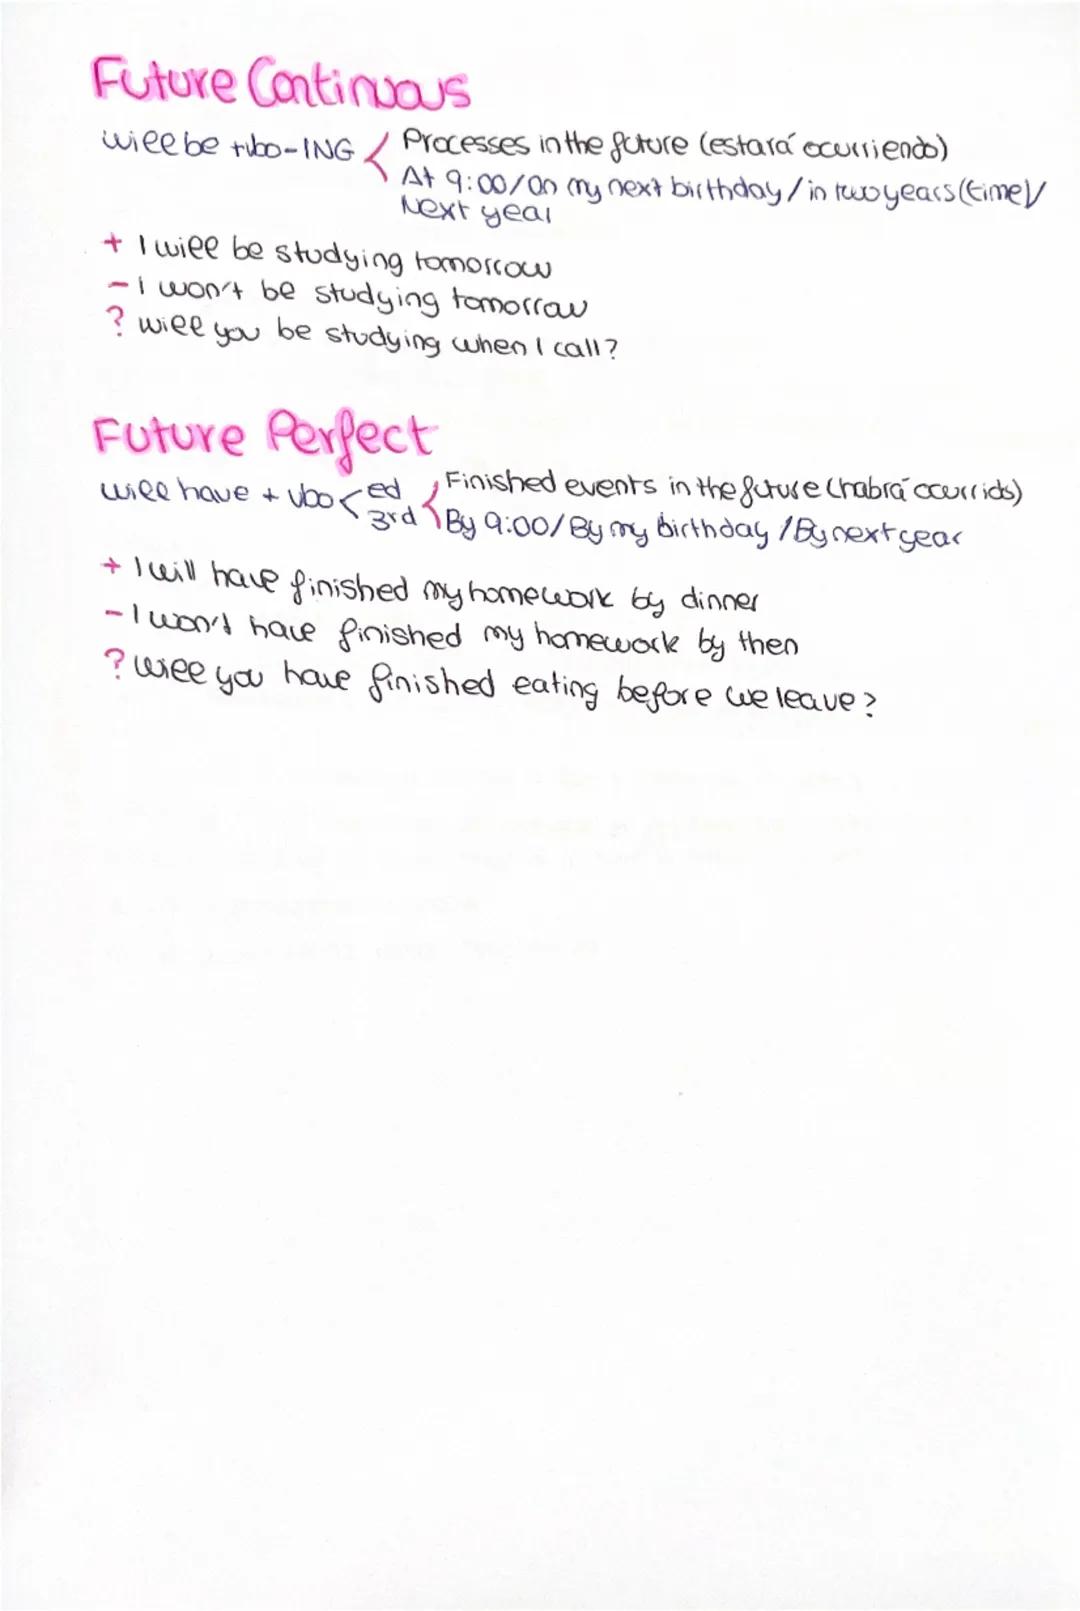 Future Continuous
will be + vbo-ING Processes in the future (estará ocurriendo)
At 9:00/On my next birthday/in two years (time)/
Next year
+ I will be studying tomorrow
- I won't be studying tomorrow
? will you be studying when I call?
Future Perfect
will have + vbo ed Finished events in the future (habrá ocurrido)
3rd By 9:00/By my birthday/By next year
+ I will have finished my homework by dinner
- I won't have finished my homework by then
? will you have finished eating before we leave?